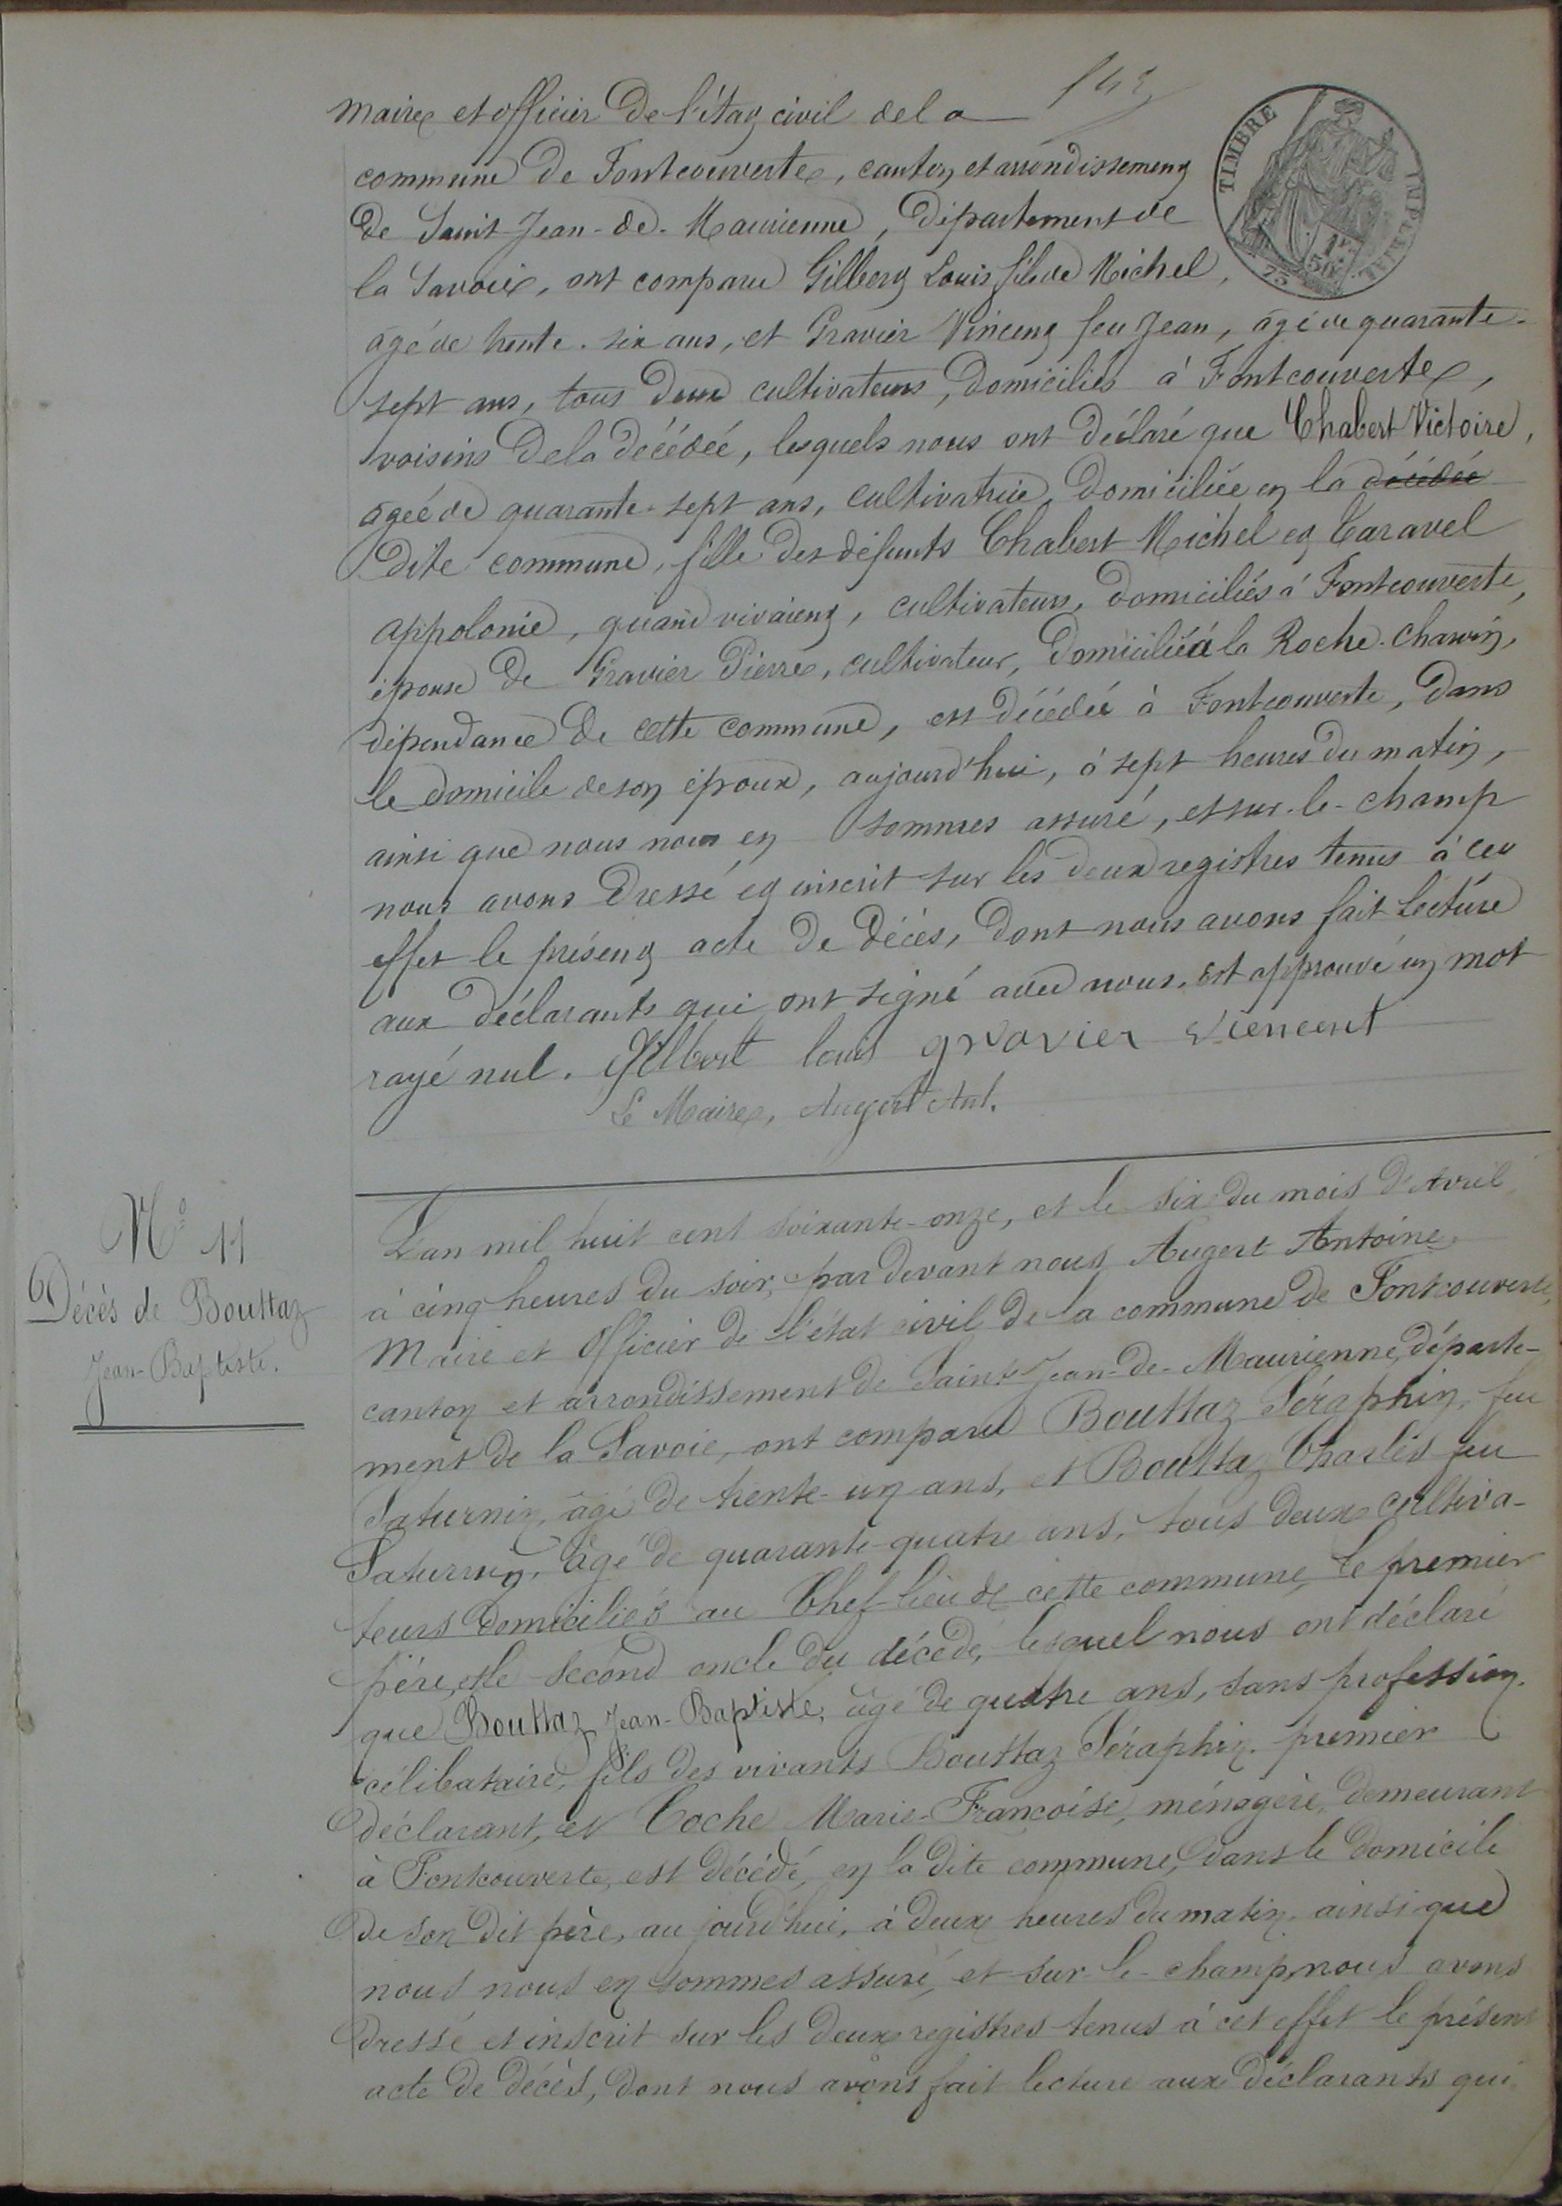 maire et officier de l'état civil de la
TIMBRE IMPERIAL
1F 50c.
commune de Fontcouverte, canton et arrondissement
de Saint-Jean-de-Maurienne, département de
la Savoie, ont comparu Gilbert Louis fils de Michel,
âgé de trente-six ans, et Gravier Vincent feu Jean, âgé de quarante-
sept ans, tous deux cultivateurs, domiciliés à Fontcouverte,
voisins de la décédée, lesquels nous ont déclaré que Chabert Victoire,
âgée de quarante-sept ans, cultivatrice, domiciliée en la décédée
dite commune, fille des défunts Chabert Michel et Taravel
Appolonie, quand vivaient, cultivateurs, domiciliés à Fontcouverte,
épouse de Gravier Pierre, cultivateur, domicilié à la Roche-Charvin,
dépendance de cette commune, est décédée à Fontcouverte, dans
le domicile de son époux, aujourd'hui, à sept heures du matin,
ainsi que nous nous en sommes assuré, et sur-le-champ
nous avons dressé et inscrit sur les deux registres tenus à cet
effet le présent acte de décès, dont nous avons fait lecture
aux déclarants qui ont signé avec nous. Est approuvé un mot
rayé nul. Gilbert louis gravier viencent
Le Maire, Augert Ant.
N° 11
Décès de Bouttaz
Jean-Baptiste.
L'an mil huit cent soixante-onze, et le six du mois d'Avril
à cinq heures du soir, par devant nous Augert Antoine
Maire et Officier de l'état civil de la commune de Fontcouverte,
canton et arrondissement de Saint-Jean-de-Maurienne, départe-
ment de la Savoie, ont comparu Bouttaz Séraphin, feu
Saturnin, âgé de trente-un ans, et Bouttaz Charles feu
Saturnin, âgé de quarante-quatre ans, tous deux cultiva-
teurs domiciliés au Chef-lieu de cette commune, le premier
père, et le second oncle du décédé, lesquel nous ont déclaré
que Bouttaz Jean-Baptiste, âgé de quatre ans, sans profession,
célibataire, fils des vivants Bouttaz Séraphin, premier
déclarant, et Coche Marie-Françoise, ménagère, demeurant
à Fontcouverte, est décédé, en la dite commune, dans le domicile
de son dit père, aujourd'hui, à deux heures du matin, ainsi que
nous nous en sommes assuré, et sur-le-champ, nous avons
dressé et inscrit sur les deux registres tenus à cet effet le présent
acte de décès, dont nous avons fait lecture aux déclarants qui